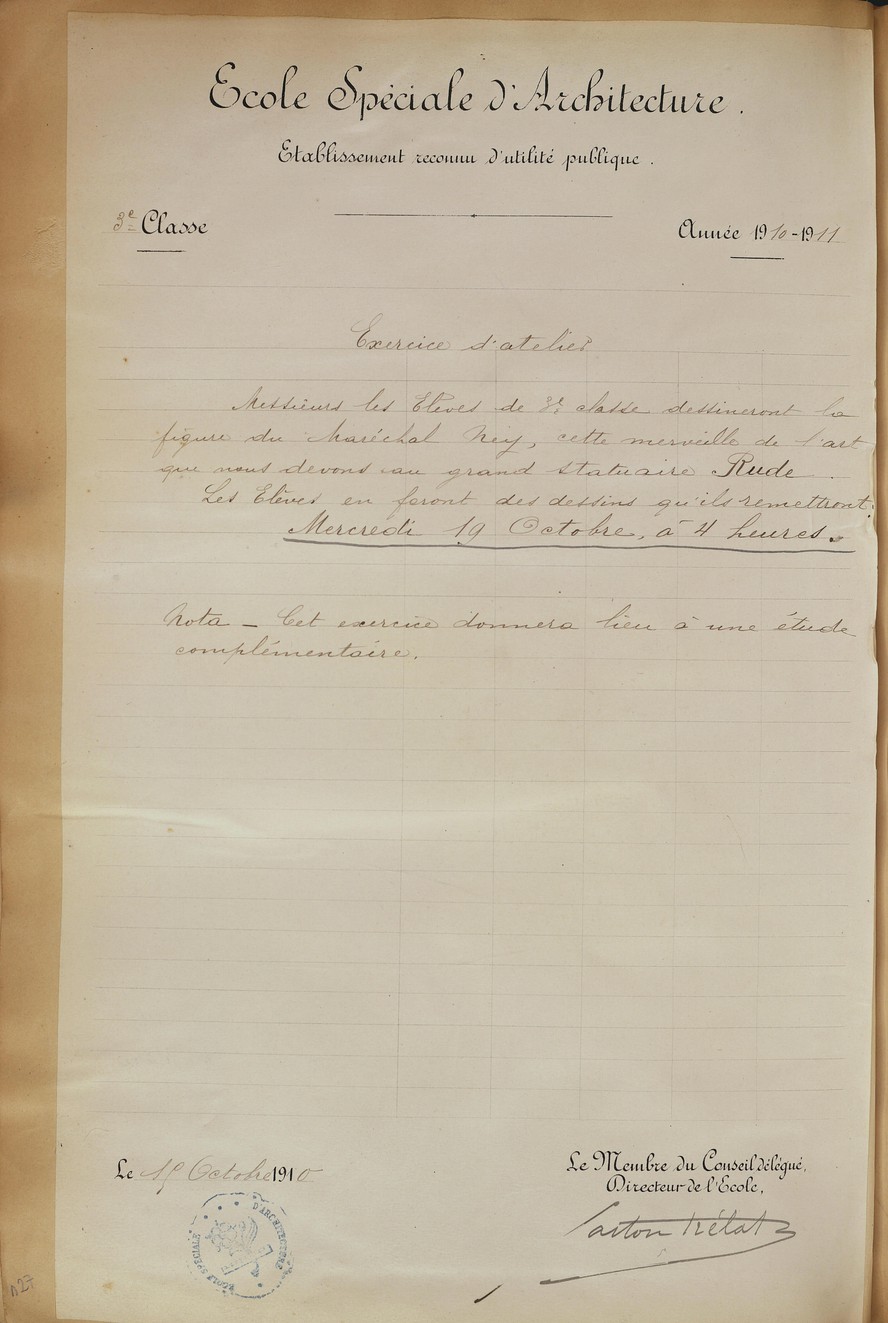 Ecole Spéciale d'Architecture.
Etablissement reconnu d'utilité publique.
3e Classe
Année 1910-1911
Exercice d'atelier
Messieurs les Elèves de 3e classe dessineront la
figure du Maréchal Ney, cette merveille de l'art
que nous devons au grand statuaire Rude.
Les Elèves en feront des dessins qu'ils remettront:
Mercredi 19 Octobre, à 4 heures.
Nota - Cet exercice donnera lieu à une étude
complémentaire.
Le Octobre 1910
Le Membre du Conseil délégué,
Directeur de l'Ecole,
Gaston Trélat
ECOLE SPECIALE D'ARCHITECTURE
n27